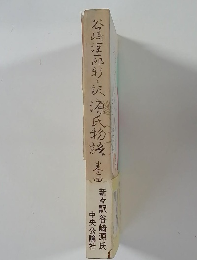 谷崎潤一郎新々訳 源氏物語 巻四
新々訳谷崎源氏
中央公論社